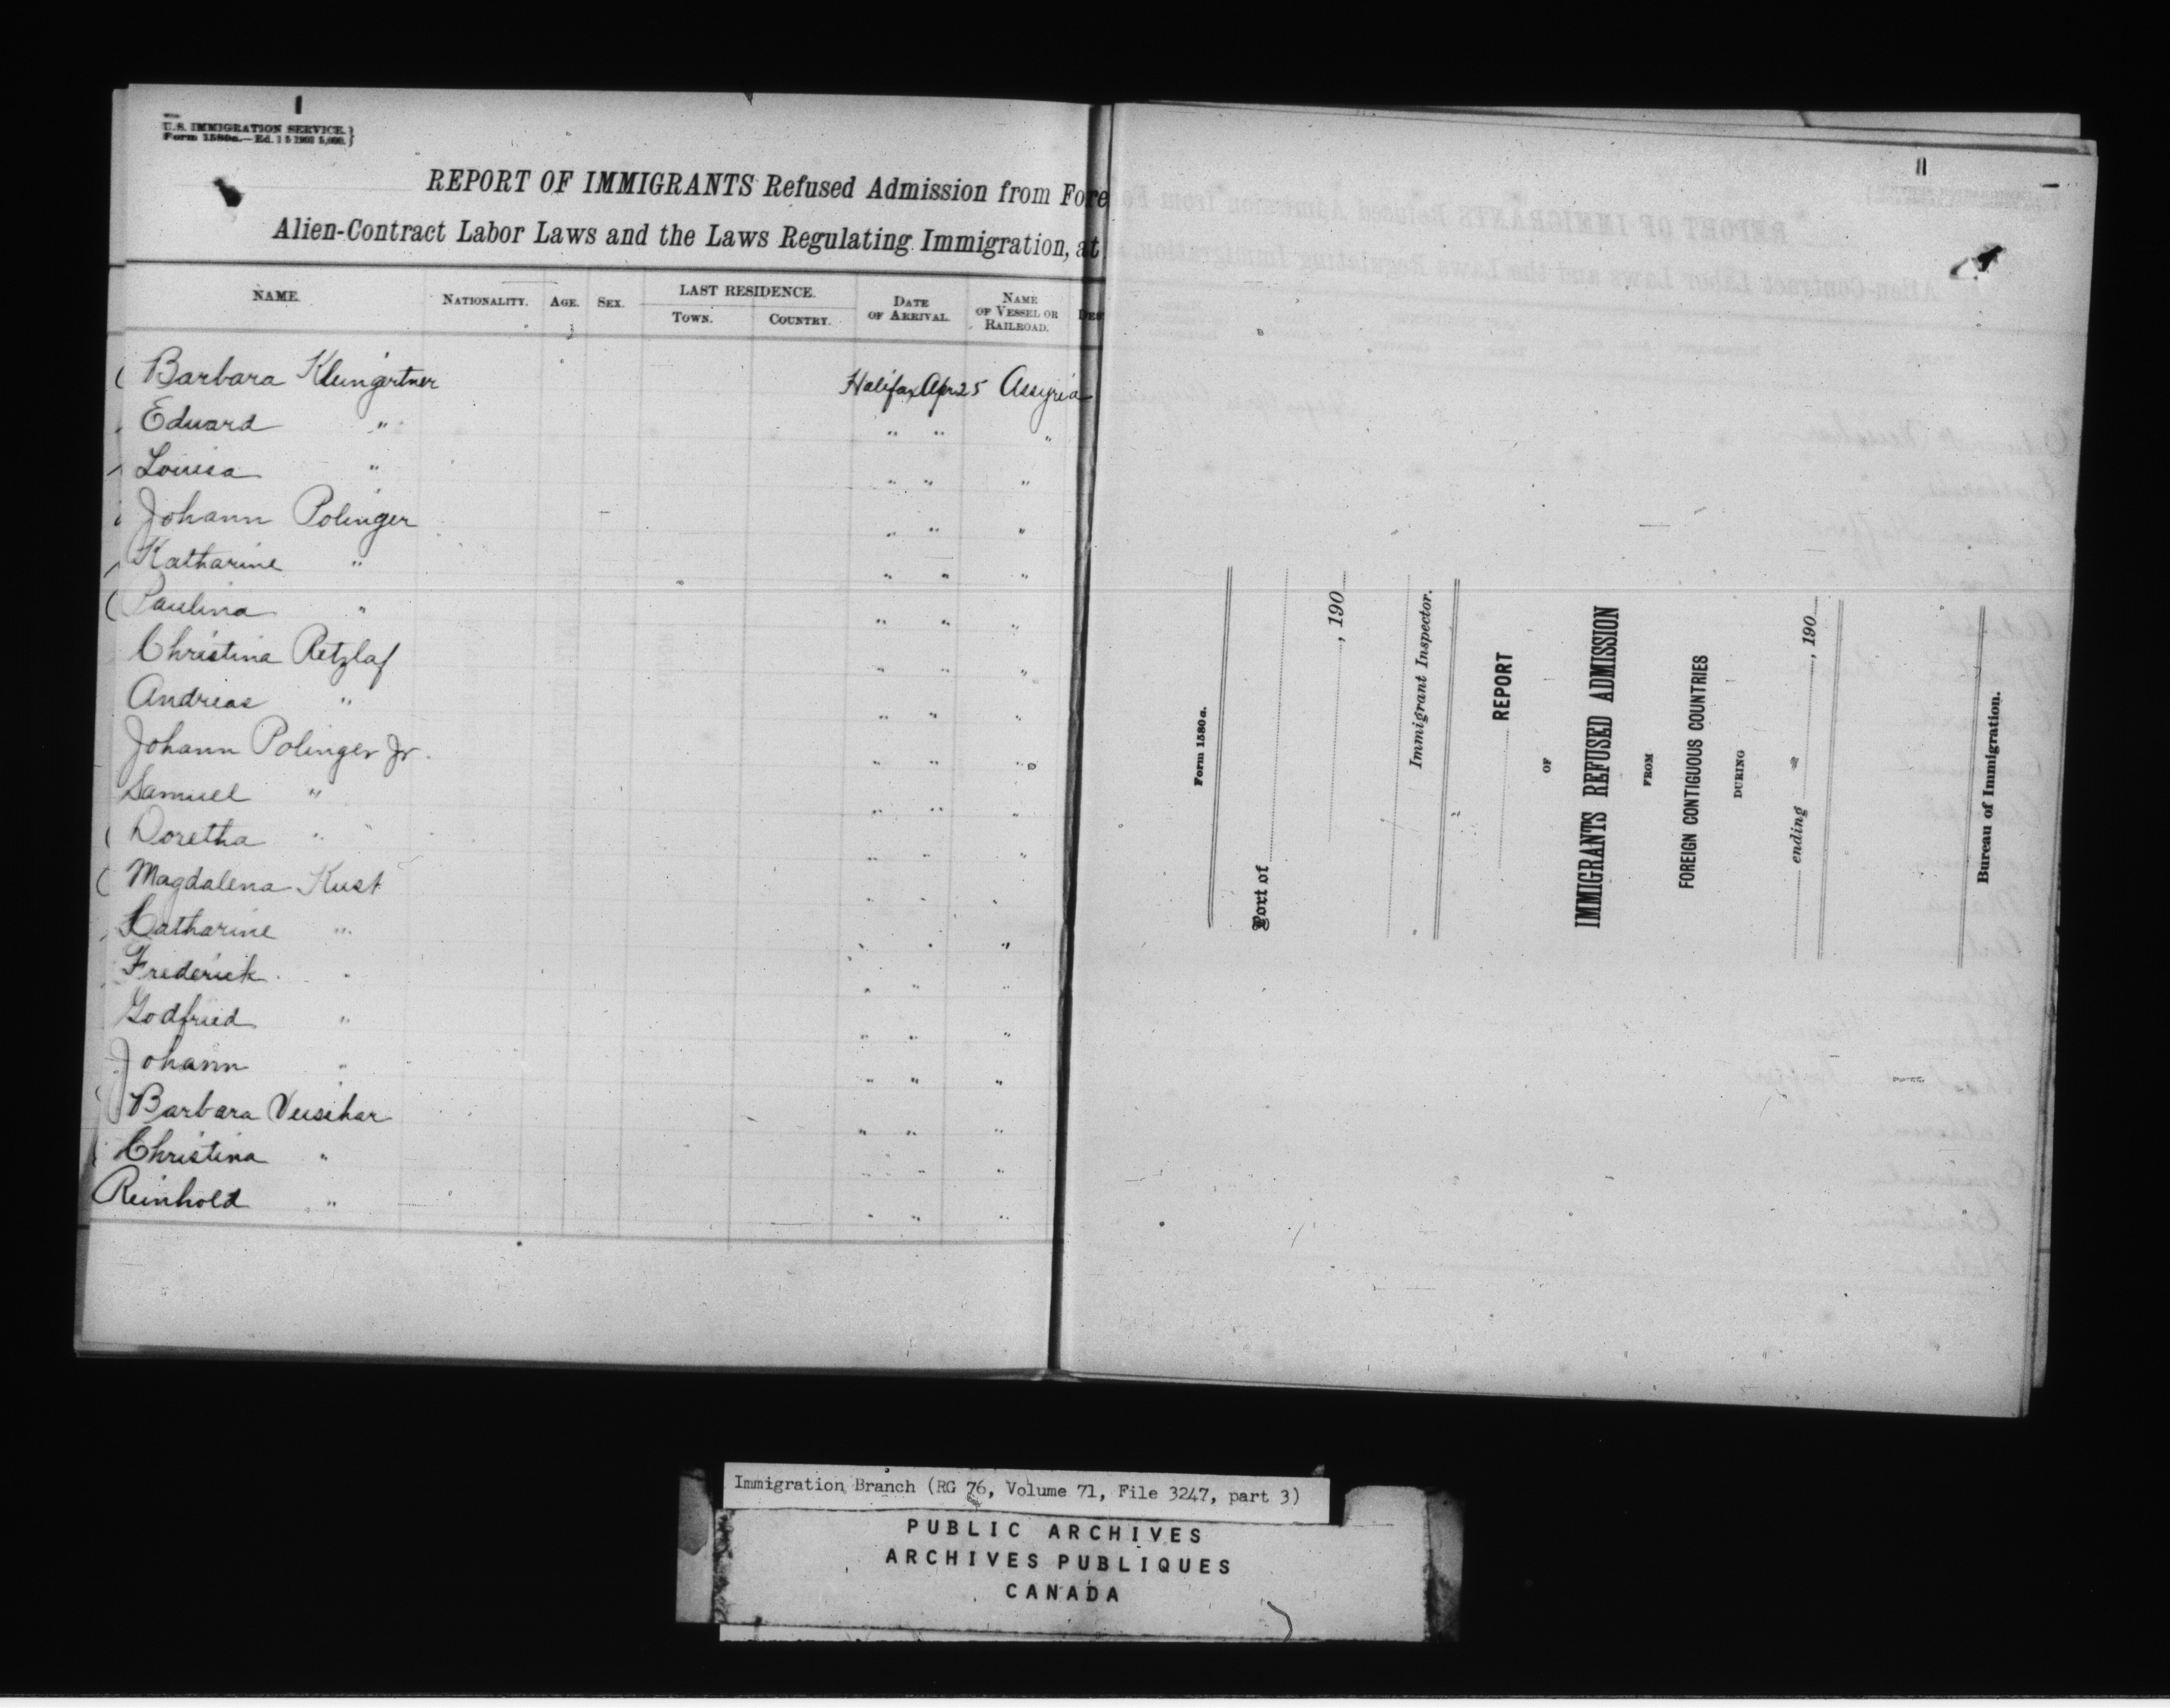 U.S. IMMIGRATION SERVICE.
Form 1580a.—Ed. 1 5 1902 5,000.
REPORT OF IMMIGRANTS Refused Admission from Fore
Alien-Contract Labor Laws and the Laws Regulating Immigration, at
NAME. NATIONALITY. AGE. SEX. LAST RESIDENCE. TOWN. COUNTRY. DATE OF ARRIVAL. NAME OF VESSEL OR RAILROAD. DES
Barbara Kleingertner Halifax Apr 25 Assyria
Eduard " " " "
Louisa " " " "
Johann Polinger " " "
Katharine " " " "
Paulina " " " "
Christina Retzlaf " " "
Andreas " " " "
Johann Polinger Jr. " " "
Samuel " " " "
Doretha " " " "
Magdalena Kust " " "
Katharine " " " "
Frederick " " " "
Godfried " " " "
Johann " " " "
Barbara Veusihar " " "
Christina " " " "
Reinhold " " " "
Form 1580a.
Port of
, 190
Immigrant Inspector.
REPORT
OF
IMMIGRANTS REFUSED ADMISSION
FROM
FOREIGN CONTIGUOUS COUNTRIES
DURING
ending , 190
Bureau of Immigration.
Immigration Branch (RG 76, Volume 71, File 3247, part 3)
PUBLIC ARCHIVES
ARCHIVES PUBLIQUES
CANADA